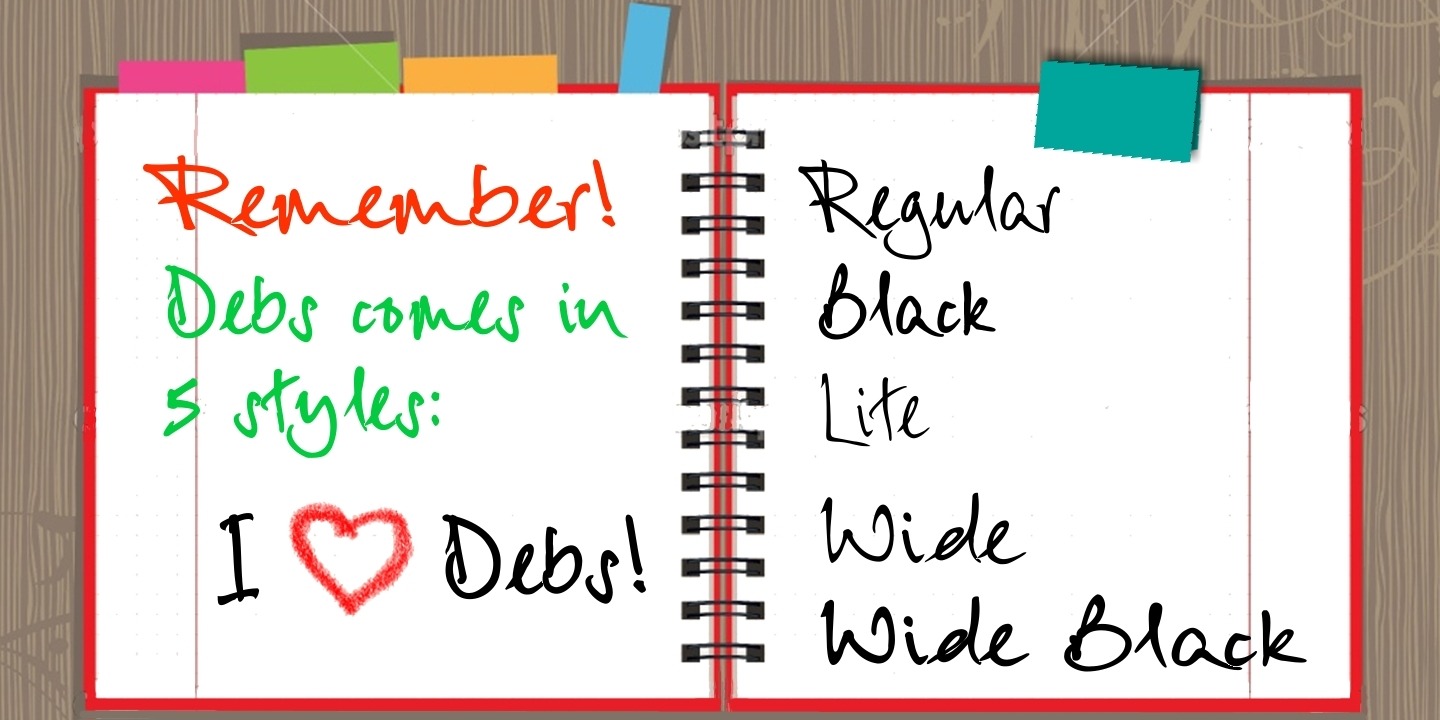 Remember!
Debs comes in
5 styles:
I Debs!
Regular
Black
Lite
Wide
Wide Black